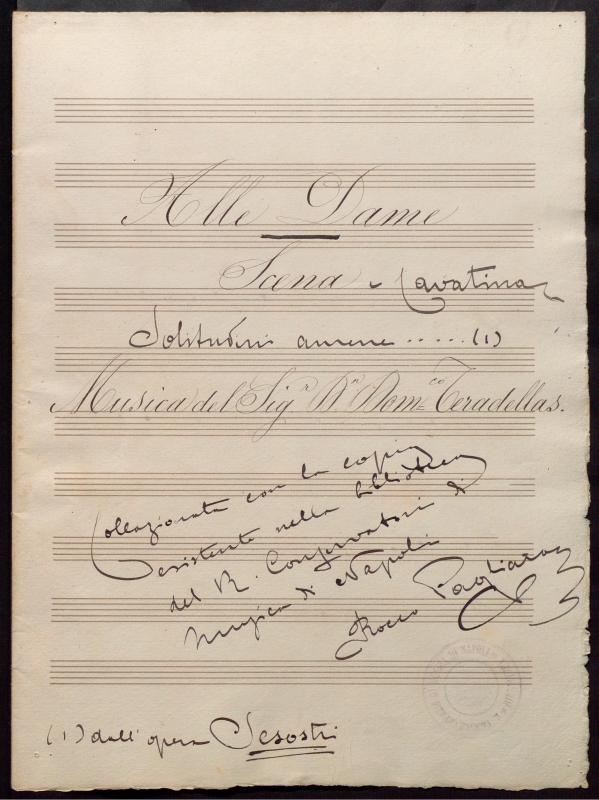 Alle Dame
Scena e Cavatina
Solitudini amene ..... (1)
Musica del Sigr. Dn. Domco. Teradellas.
Collazionata con la copia
esistente nella biblioteca
del R. Conservatorio di
musica di Napoli
Rocco Pagliara
(1) dall'opera Sesostri